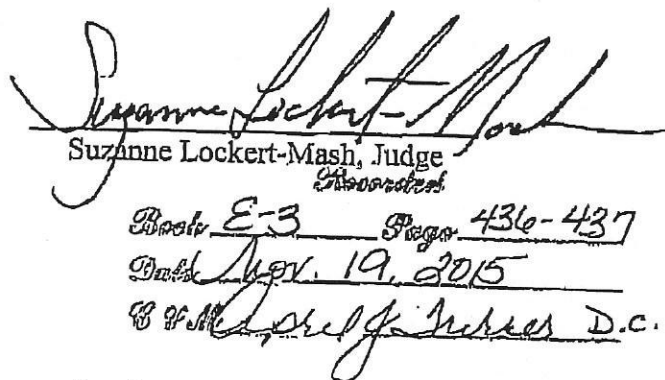 Suzanne Lockert-Mash
Suzanne Lockert-Mash, Judge
Recorded
Book E-3 Page 436-437
Date Nov. 19, 2015
D.C.